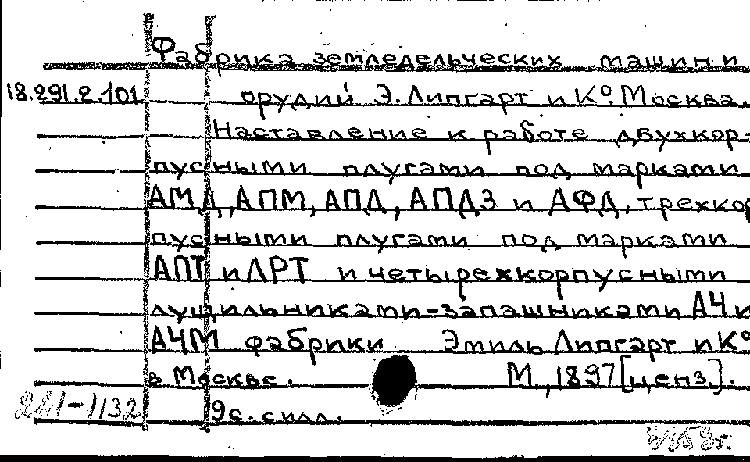 Фабрика земледельческих машин и
18.291.2.101 орудий Э. Липгарт и Ко. Москва.
Наставление к работе двухкор-
пусными плугами под марками
АМД, АПМ, АПД, АПДЗ и АФД, трехкор
пусными плугами под марками
АПТ и АРТ и четырехкорпусными
лущильниками-запашниками АЧ и
АЧМ фабрики Эмиль Липгарт и Ко
в Москве. М., 1897 [ценз.].
9 с. с илл.